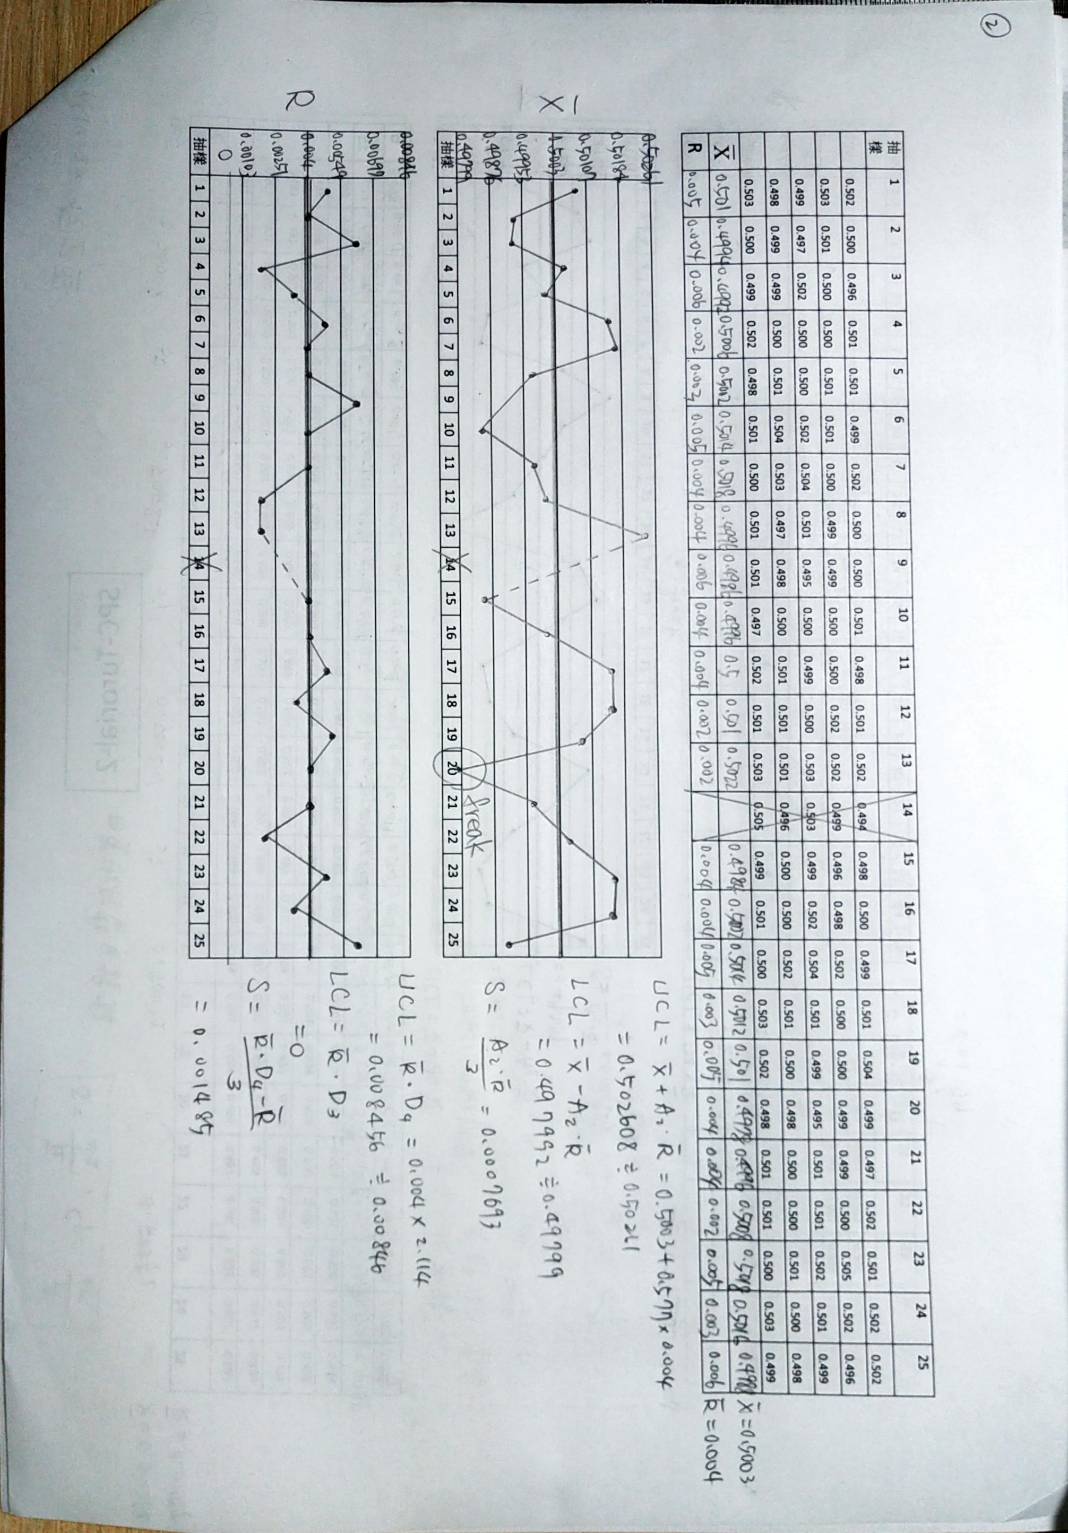 ②
抽樣 1 2 3 4 5 6 7 8 9 10 11 12 13 14 15 16 17 18 19 20 21 22 23 24 25
0.502 0.500 0.496 0.501 0.501 0.499 0.502 0.500 0.500 0.501 0.498 0.501 0.502 0.494 0.498 0.500 0.499 0.501 0.504 0.499 0.497 0.502 0.501 0.502 0.502
0.503 0.501 0.500 0.500 0.501 0.501 0.500 0.499 0.499 0.500 0.500 0.502 0.502 0.499 0.496 0.498 0.502 0.500 0.500 0.499 0.499 0.500 0.505 0.502 0.496
0.499 0.497 0.502 0.500 0.500 0.502 0.504 0.501 0.495 0.500 0.499 0.500 0.503 0.503 0.499 0.502 0.504 0.501 0.499 0.495 0.501 0.501 0.502 0.501 0.499
0.498 0.499 0.499 0.500 0.501 0.504 0.503 0.497 0.498 0.500 0.501 0.501 0.501 0.496 0.500 0.500 0.502 0.501 0.500 0.498 0.500 0.500 0.501 0.500 0.498
0.503 0.500 0.499 0.502 0.498 0.501 0.500 0.501 0.501 0.497 0.502 0.501 0.503 0.505 0.499 0.501 0.500 0.503 0.502 0.498 0.501 0.501 0.500 0.503 0.499
X̄ 0.501 0.4994 0.4992 0.5006 0.5002 0.5014 0.5018 0.4994 0.4986 0.4996 0.5 0.501 0.5022 0.4984 0.5002 0.5014 0.5012 0.501 0.4978 0.4996 0.5008 0.5018 0.5016 0.4988 X̄=0.5003
R 0.005 0.004 0.006 0.002 0.003 0.005 0.004 0.004 0.006 0.004 0.004 0.002 0.002 0.004 0.004 0.005 0.003 0.005 0.004 0.004 0.002 0.005 0.003 0.006 R̄=0.004
X̄
0.50261
0.50184
0.50107
0.5003
0.49953
0.49876
0.49799
freak
抽樣 1 2 3 4 5 6 7 8 9 10 11 12 13 14 15 16 17 18 19 20 21 22 23 24 25
UCL= X̄+A₂·R̄ =0.5003+0.577×0.004
=0.502608≒0.50261
LCL=X̄-A₂·R̄
=0.497992≒0.49799
S= A₂·R̄/3 =0.0007693
R
0.00846
0.00697
0.00549
0.004
0.00251
0.00103
0
抽樣 1 2 3 4 5 6 7 8 9 10 11 12 13 14 15 16 17 18 19 20 21 22 23 24 25
UCL= R̄·D₄ =0.004×2.114
=0.008456 ≒0.00846
LCL=R̄·D₃
=0
S= R̄·D₄-R̄/3
=0.001485